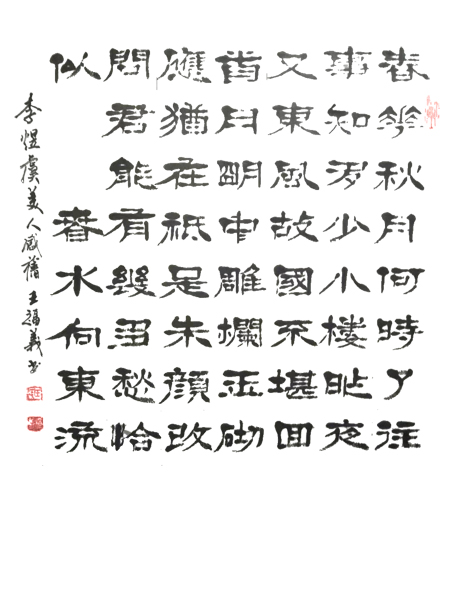 春華秋月何時了往
事知多少小樓昨夜
又東風故國不堪回
首月明中雕欄玉砌
應猶在祗是朱顏改
問君能有幾多愁恰
似 春水向東流
李煜虞美人感舊 王福義書